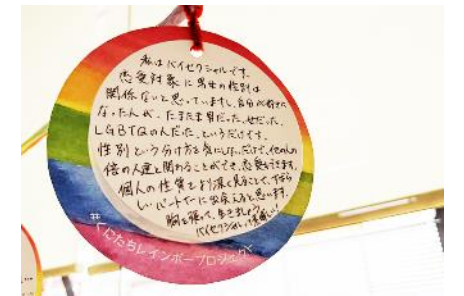 私はバイセクシャルです。
恋愛対象に男女の性別は
関係ないと思っていますし、自分が好きに
なった人が、たまたま男だった、女だった、
LGBTQの人だった、というだけです。
性別という分け方を気にしないだけで、他の人の
倍の人達と関わることができ、恋愛もできます。
個人の性質をより深く見ることで、すばら
しいパートナーに出会えると思います。
胸を張って、生きましょう。
バイセクシャルって素晴しい!
#くにたちレインボープロジェクト